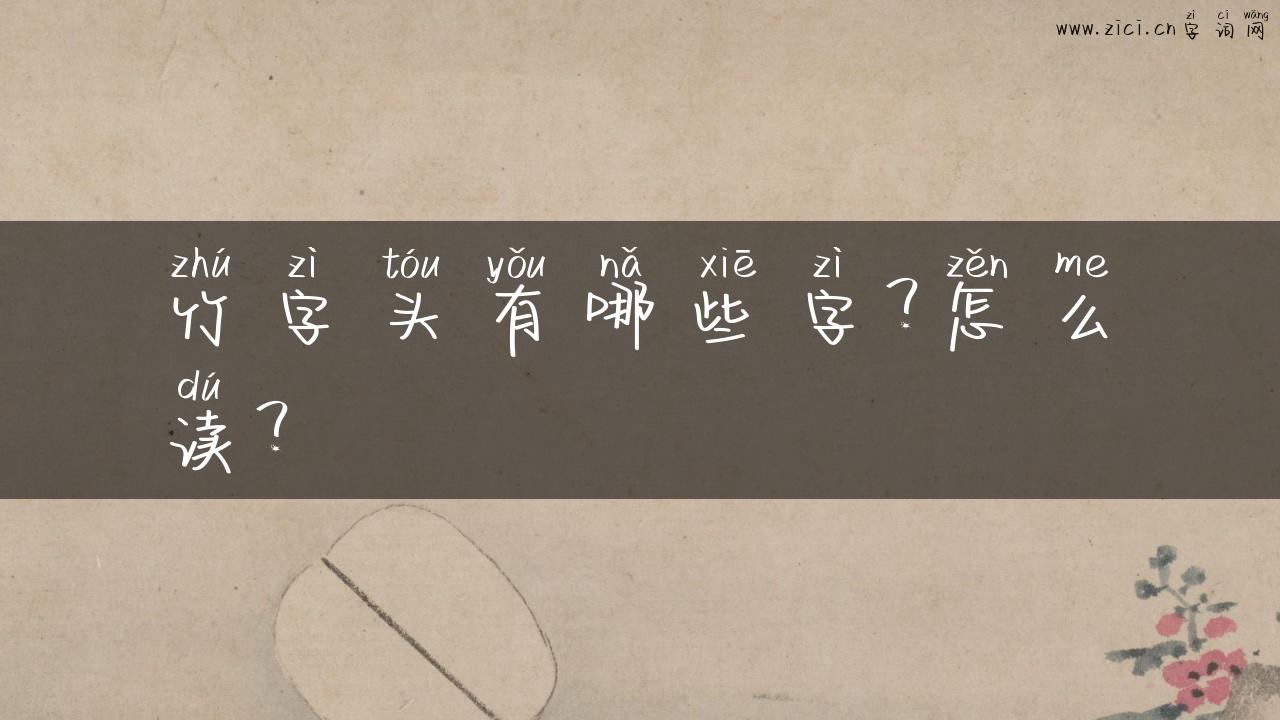 zì cí wǎng
www.zici.cn字词网
zhú zì tóu yǒu nǎ xiē zì zěn me
竹字头有哪些字?怎么
dú
读?